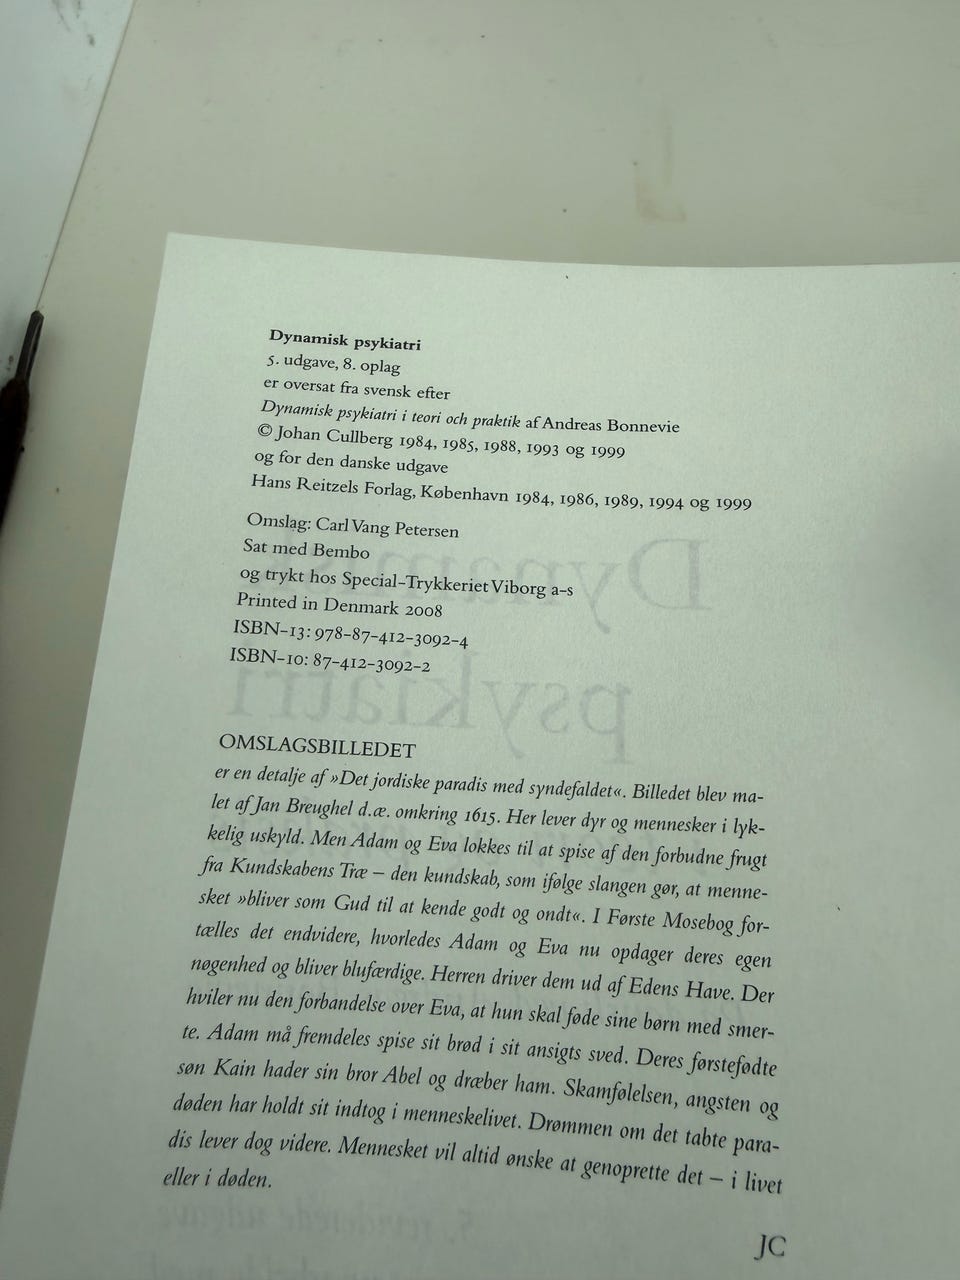 Dynamisk psykiatri
5. udgave, 8. oplag
er oversat fra svensk efter
Dynamisk psykiatri i teori och praktik af Andreas Bonnevie
© Johan Cullberg 1984, 1985, 1988, 1993 og 1999
og for den danske udgave
Hans Reitzels Forlag, København 1984, 1986, 1989, 1994 og 1999
Omslag: Carl Vang Petersen
Sat med Bembo
og trykt hos Special-Trykkeriet Viborg a-s
Printed in Denmark 2008
ISBN-13: 978-87-412-3092-4
ISBN-10: 87-412-3092-2
OMSLAGSBILLEDET
er en detalje af »Det jordiske paradis med syndefaldet«. Billedet blev ma-
let af Jan Breughel d.æ. omkring 1615. Her lever dyr og mennesker i lyk-
kelig uskyld. Men Adam og Eva lokkes til at spise af den forbudne frugt
fra Kundskabens Træ – den kundskab, som ifølge slangen gør, at menne-
sket »bliver som Gud til at kende godt og ondt«. I Første Mosebog for-
tælles det endvidere, hvorledes Adam og Eva nu opdager deres egen
nøgenhed og bliver blufærdige. Herren driver dem ud af Edens Have. Der
hviler nu den forbandelse over Eva, at hun skal føde sine børn med smer-
te. Adam må fremdeles spise sit brød i sit ansigts sved. Deres førstefødte
søn Kain hader sin bror Abel og dræber ham. Skamfølelsen, angsten og
døden har holdt sit indtog i menneskelivet. Drømmen om det tabte para-
dis lever dog videre. Mennesket vil altid ønske at genoprette det – i livet
eller i døden.
JC